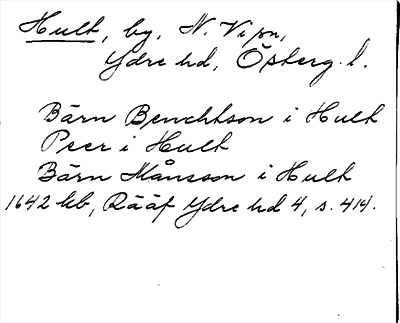 Hult, by, N. Vi sn,
Ydre hd, Österg. l.
Bärn Benchtson i Hult
Peer i Hult
Bärn Månsson i Hult
1642 kb, Rääf Ydre hd 4, s. 414.